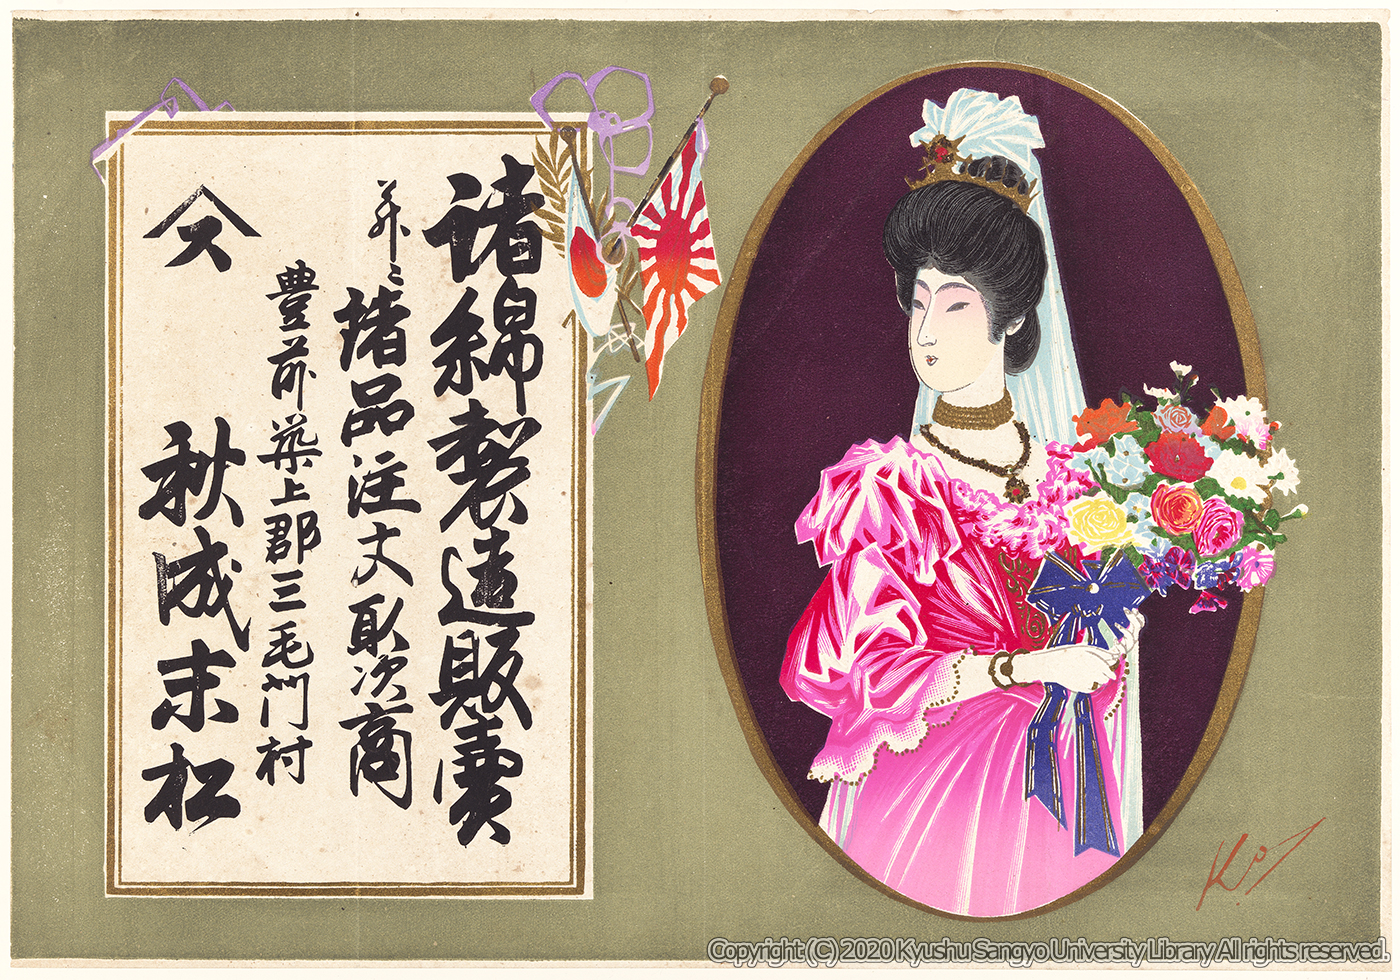 諸綿製造販賣
并ニ諸品注文取次商
豊前築上郡三毛門村
ス
秋成末松
K.
Copyright (C) 2020 Kyushu Sangyo University Library All rights reserved.